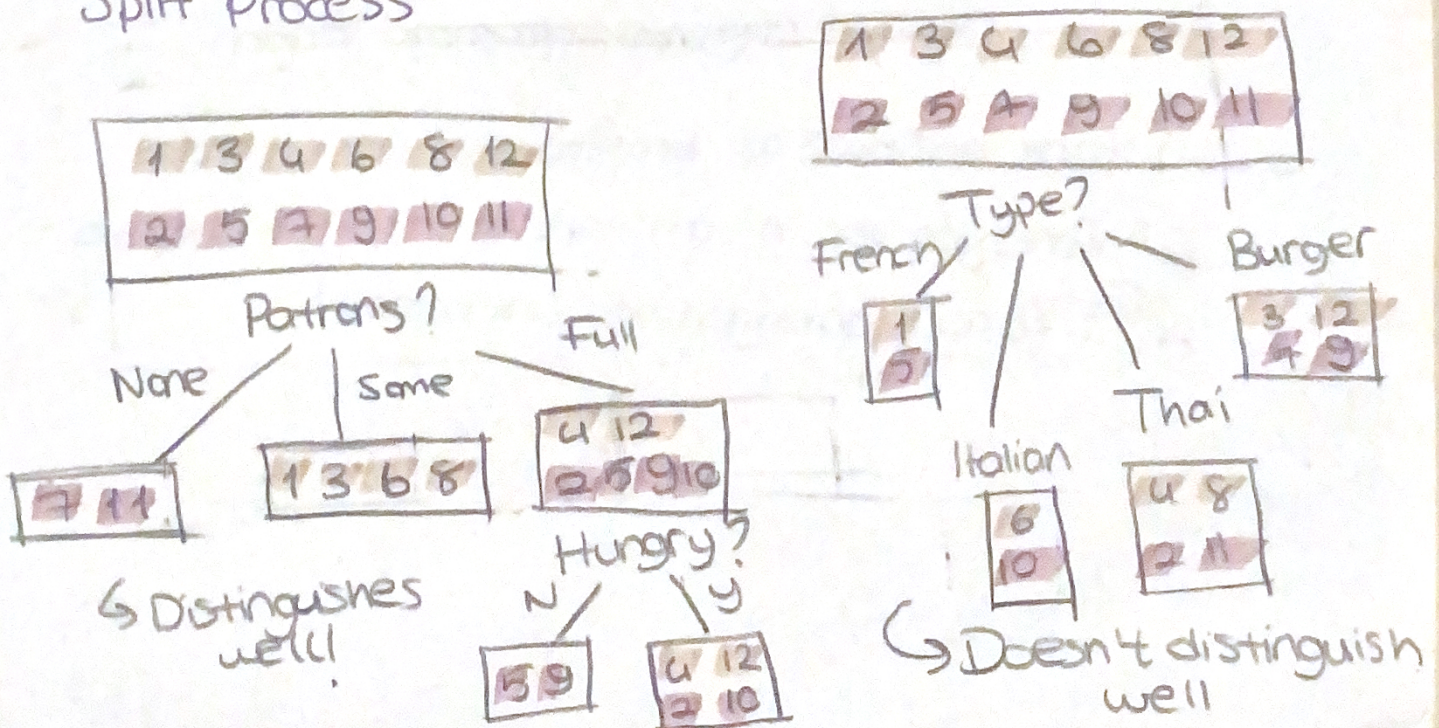 Split Process
1 3 4 6 8 12
2 5 7 9 10 11
Patrons?
None
Some
Full
7 11
1 3 6 8
4 12
2 5 9 10
Hungry?
N
Y
5 9
4 12
2 10
↳ Distinguishes
well!
1 3 4 6 8 12
2 5 7 9 10 11
Type?
French
Burger
1
5
3 12
7 9
Italian
Thai
6
10
4 8
2 11
↳ Doesn't distinguish
well